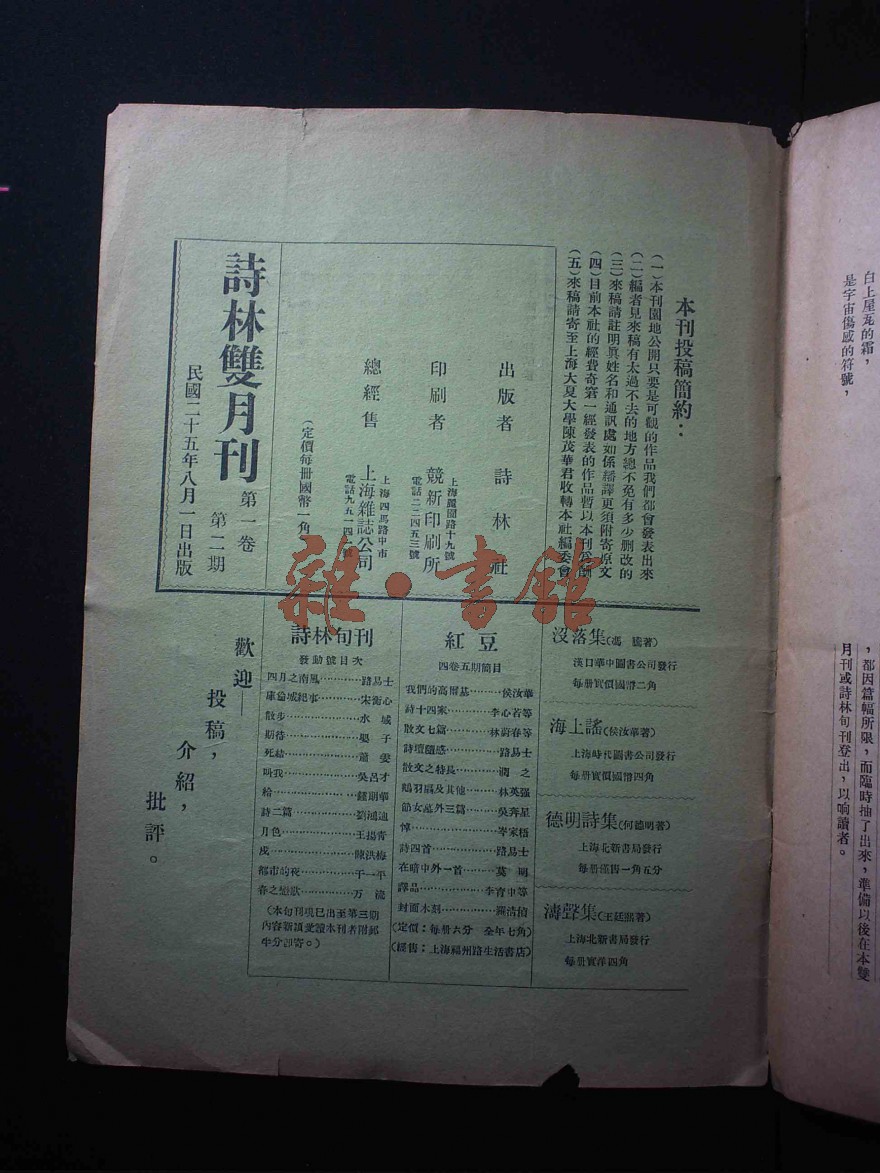 本刊投稿簡約：
(一)本刊園地公開只要是可觀的作品我們都會發表出來
(二)編者見來稿有太過不去的地方總不免有多少删改的
(三)來稿請註明眞姓名和通訊處如係繙譯更須附寄原文
(四)目前本社的經費奇窘一經發表的作品暫以本刊爲酬
(五)來稿請寄至上海大夏大學陳茂華君收轉本社編委會
出版者 詩林社
印刷者 競新印刷所
上海麗園路十九號
電話二二四五三號
總經售 上海雜誌公司
上海四馬路中市
電話九五一四
(定價每冊國幣一角
詩林雙月刊
第一卷
第二期
民國二十五年八月一日出版
雜·書館
沒落集(馮 著)
漢口華中圖書公司發行
每册實價國幣二角
海上謠(侯汝華著)
上海時代圖書公司發行
每册實價國幣四角
德明詩集(何德明著)
上海北新書局發行
每册僅售一角五分
濤聲集(王廷熙著)
上海北新書局發行
每册實洋四角
紅豆
四卷五期簡目
我們的高爾基………侯汝華
詩十四家………李心若等
散文七篇………林蔚春等
詩壇隨感………路易士
散文之特長………澗之
鵝羽扇及其他………林英强
節女墓外三篇………吳奔星
悼………岑家梧
詩四首………路易士
在暗中外一首………莫明
譯品………李育中等
封面木刻………羅清楨
(定價：每册六分 全年七角)
(經售：上海福州路生活書店)
詩林旬刊
發動號目次
四月之南風………路易士
庫倫城紀事………宋衡心
散步………水城
期待………嬰子
死結………蕭雯
叫我………吳呂才
給………鍾朝華
詩二篇………劉鴻迪
月色………王揚青
戍………陳洪梅
都市的夜………于一平
春之戀歌………万流
(本旬刊現已出至第三期
內容新穎愛讀本刊者附郵
半分卽寄。)
歡迎—
投稿，
介紹，
批評。
白上屋瓦的霜，
是宇宙傷感的符號，
，都因篇幅所限，而臨時抽了出來，準備以後在本雙
月刊或詩林旬刊登出，以响讀者。